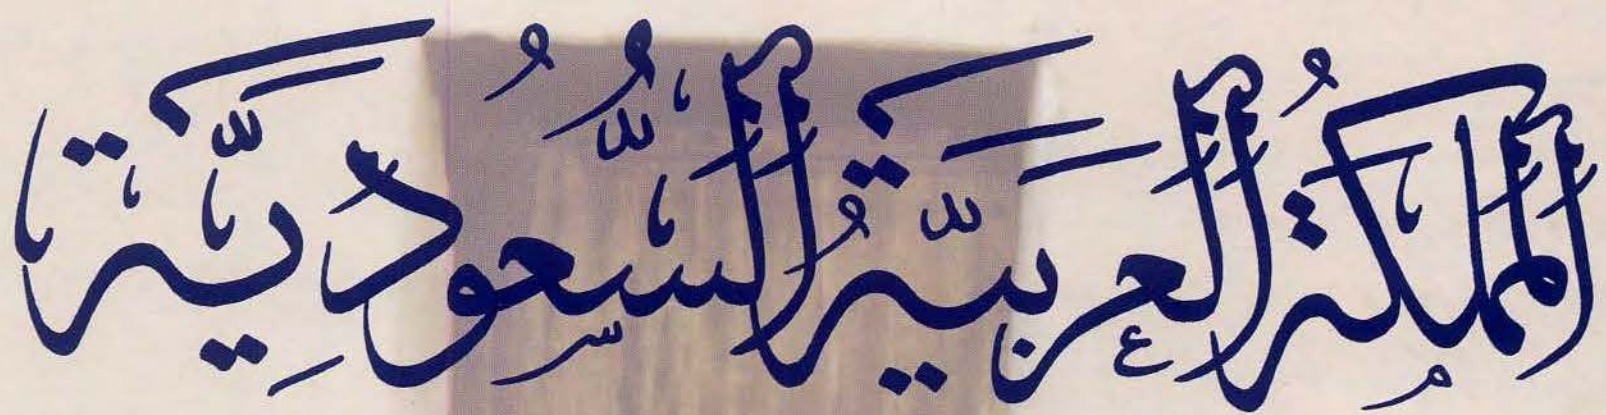 المملكةُ العربيّةُ السُّعُودِيّة